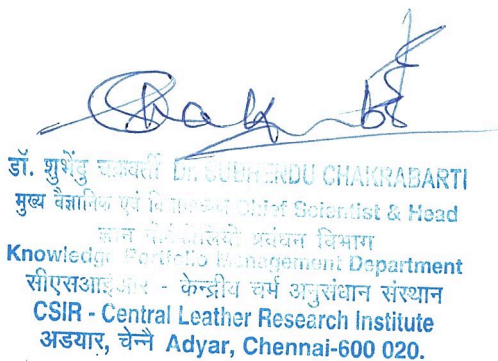 डॉ. शुभेंदु चक्रवर्ती DR. SUBHENDU CHAKRABARTI
मुख्य वैज्ञानिक एवं Chief Scientist & Head
ज्ञान पोर्टफोलियो प्रबंधन विभाग
Knowledge Portfolio Management Department
सीएसआईआर - केन्द्रीय चर्म अनुसंधान संस्थान
CSIR - Central Leather Research Institute
अडयार, चेन्नै Adyar, Chennai-600 020.